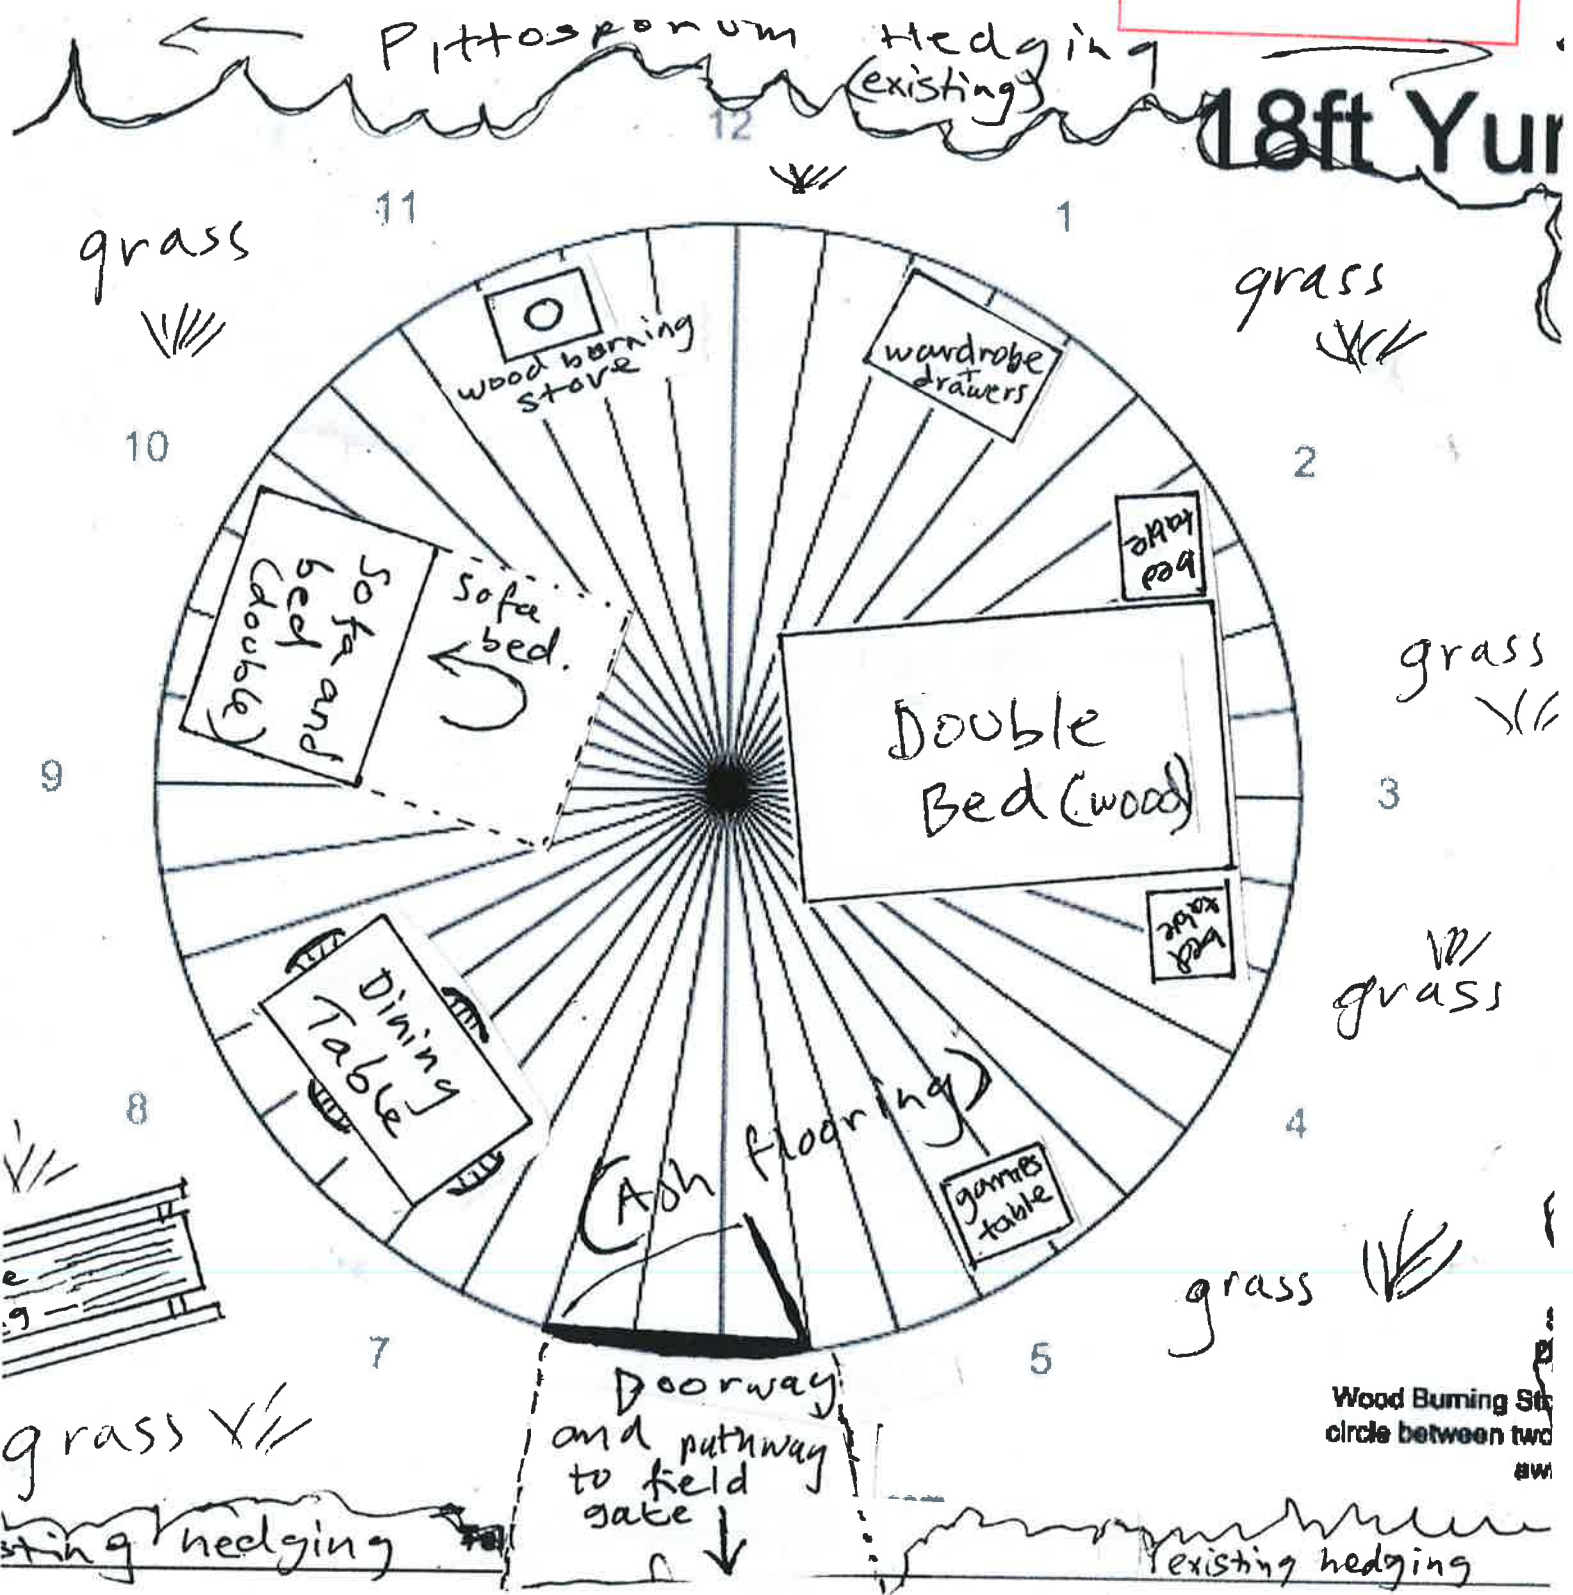 Pittosponum Hedging
(existing)
18ft Yur
12
11
1
grass
grass
wood burning
stove
wardrobe
+
drawers
10
2
bed
table
sofa and
bed
(double)
sofa
bed.
grass
Double
Bed (wood)
9
3
bed
table
grass
Dining
Table
8
4
(Ash flooring)
games
table
e
g
grass
7
5
Doorway
and pathway
to field
gate
grass
Wood Burning Sto
circle between two
awa
sting hedging
existing hedging